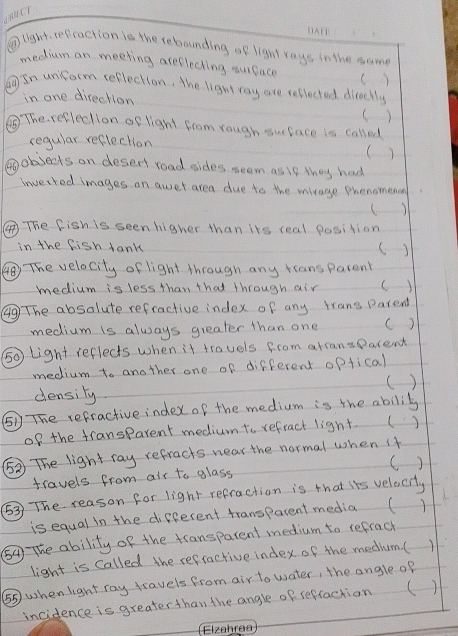 DATE
(43) light refraction is the rebounding of light rays in the same
medium on meeting a reflecting surface ( )
(44) In uniform reflection, the light ray are reflected directly
in one direction ( )
(45) The reflection of light from rough surface is called
regular reflection ( )
(46) objects on desert road sides seem as if they had
inverted images on a wet area due to the mirage phenomenon
( )
(47) The fish is seen higher than its real position
in the fish tank ( )
(48) The velocity of light through any transparent
medium is less than that through air ( )
(49) The absolute refractive index of any transparent
medium is always greater than one ( )
(50) Light reflects when it travels from a transparent
medium to another one of different optical
density. ( )
(51) The refractive index of the medium is the ability
of the transparent medium to refract light. ( )
(52) The light ray refracts near the normal when it
travels from air to glass ( )
(53) The reason for light refraction is that its velocity
is equal in the different transparent media ( )
(54) The ability of the transparent medium to refract
light is called the refractive index of the medium ( )
(55) when light ray travels from air to water, the angle of
incidence is greater than the angle of refraction ( )
Elzahraa